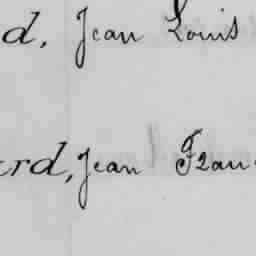 d, Jean Louis
ard, Jean Fran